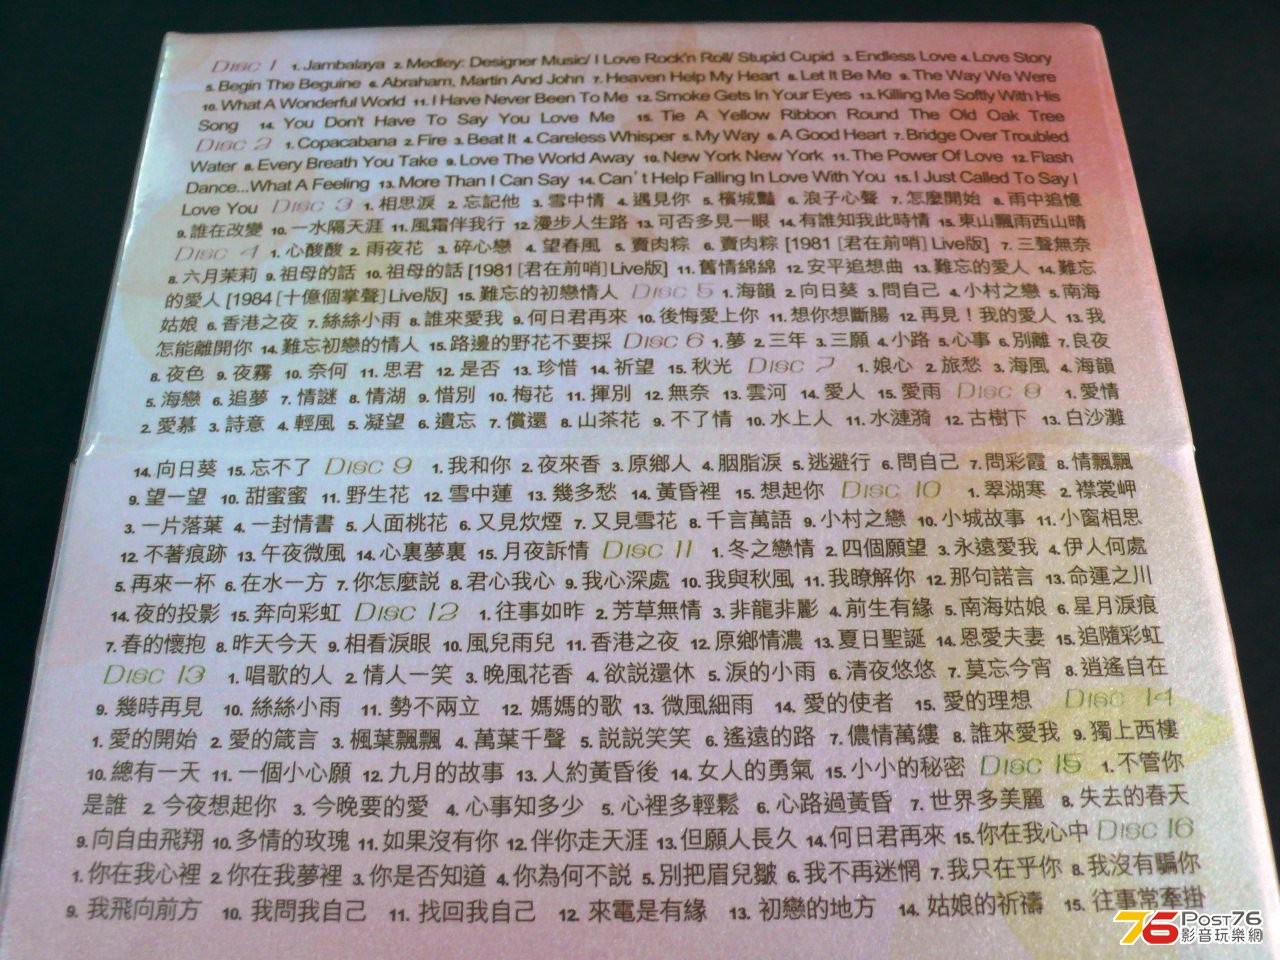 Disc 1 1.Jambalaya 2.Medley: Designer Music/ I Love Rock'n Roll/ Stupid Cupid 3.Endless Love 4.Love Story
5.Begin The Beguine 6.Abraham, Martin And John 7.Heaven Help My Heart 8.Let It Be Me 9.The Way We Were
10.What A Wonderful World 11.I Have Never Been To Me 12.Smoke Gets In Your Eyes 13.Killing Me Softly With His
Song 14. You Don't Have To Say You Love Me 15. Tie A Yellow Ribbon Round The Old Oak Tree
Disc 2 1.Copacabana 2.Fire 3.Beat It 4.Careless Whisper 5.My Way 6.A Good Heart 7.Bridge Over Troubled
Water 8.Every Breath You Take 9.Love The World Away 10.New York New York 11.The Power Of Love 12.Flash
Dance...What A Feeling 13.More Than I Can Say 14.Can't Help Falling In Love With You 15.I Just Called To Say I
Love You Disc 3 1.相思淚 2.忘記他 3.雪中情 4.遇見你 5.檳城艷 6.浪子心聲 7.怎麼開始 8.雨中追憶
9.誰在改變 10.一水隔天涯 11.風霜伴我行 12.漫步人生路 13.可否多見一眼 14.有誰知我此時情 15.東山飄雨西山晴
Disc 4 1.心酸酸 2.雨夜花 3.碎心戀 4.望春風 5.賣肉粽 6.賣肉粽 [1981 [君在前哨] Live版] 7.三聲無奈
8.六月茉莉 9.祖母的話 10.祖母的話 [1981 [君在前哨] Live版] 11.舊情綿綿 12.安平追想曲 13.難忘的愛人 14.難忘
的愛人 [1984 [十億個掌聲] Live版] 15.難忘的初戀情人 Disc 5 1.海韻 2.向日葵 3.問自己 4.小村之戀 5.南海
姑娘 6.香港之夜 7.絲絲小雨 8.誰來愛我 9.何日君再來 10.後悔愛上你 11.想你想斷腸 12.再見！我的愛人 13.我
怎能離開你 14.難忘初戀的情人 15.路邊的野花不要採 Disc 6 1.夢 2.三年 3.三願 4.小路 5.心事 6.別離 7.良夜
8.夜色 9.夜霧 10.奈何 11.思君 12.是否 13.珍惜 14.祈望 15.秋光 Disc 7 1.娘心 2.旅愁 3.海風 4.海韻
5.海戀 6.追夢 7.情謎 8.情湖 9.惜別 10.梅花 11.揮別 12.無奈 13.雲河 14.愛人 15.愛雨 Disc 8 1.愛情
2.愛慕 3.詩意 4.輕風 5.凝望 6.遺忘 7.償還 8.山茶花 9.不了情 10.水上人 11.水漣漪 12.古樹下 13.白沙灘
14.向日葵 15.忘不了 Disc 9 1.我和你 2.夜來香 3.原鄉人 4.胭脂淚 5.逃避行 6.問自己 7.問彩霞 8.情飄飄
9.望一望 10.甜蜜蜜 11.野生花 12.雪中蓮 13.幾多愁 14.黃昏裡 15.想起你 Disc 10 1.翠湖寒 2.襟裳岬
3.一片落葉 4.一封情書 5.人面桃花 6.又見炊煙 7.又見雪花 8.千言萬語 9.小村之戀 10.小城故事 11.小窗相思
12.不著痕跡 13.午夜微風 14.心裏夢裏 15.月夜訴情 Disc 11 1.冬之戀情 2.四個願望 3.永遠愛我 4.伊人何處
5.再來一杯 6.在水一方 7.你怎麼說 8.君心我心 9.我心深處 10.我與秋風 11.我瞭解你 12.那句諾言 13.命運之川
14.夜的投影 15.奔向彩虹 Disc 12 1.往事如昨 2.芳草無情 3.非龍非彲 4.前生有緣 5.南海姑娘 6.星月淚痕
7.春的懷抱 8.昨天今天 9.相看淚眼 10.風兒雨兒 11.香港之夜 12.原鄉情濃 13.夏日聖誕 14.恩愛夫妻 15.追隨彩虹
Disc 13 1.唱歌的人 2.情人一笑 3.晚風花香 4.欲說還休 5.淚的小雨 6.清夜悠悠 7.莫忘今宵 8.逍遙自在
9.幾時再見 10.絲絲小雨 11.勢不兩立 12.媽媽的歌 13.微風細雨 14.愛的使者 15.愛的理想 Disc 14
1.愛的開始 2.愛的箴言 3.楓葉飄飄 4.萬葉千聲 5.說說笑笑 6.遙遠的路 7.儂情萬縷 8.誰來愛我 9.獨上西樓
10.總有一天 11.一個小心願 12.九月的故事 13.人約黃昏後 14.女人的勇氣 15.小小的秘密 Disc 15 1.不管你
是誰 2.今夜想起你 3.今晚要的愛 4.心事知多少 5.心裡多輕鬆 6.心路過黃昏 7.世界多美麗 8.失去的春天
9.向自由飛翔 10.多情的玫瑰 11.如果沒有你 12.伴你走天涯 13.但願人長久 14.何日君再來 15.你在我心中 Disc 16
1.你在我心裡 2.你在我夢裡 3.你是否知道 4.你為何不說 5.別把眉兒皺 6.我不再迷惘 7.我只在乎你 8.我沒有騙你
9.我飛向前方 10.我問我自己 11.找回我自己 12.來電是有緣 13.初戀的地方 14.姑娘的祈禱 15.往事常牽掛
76 Post76
影音玩樂網